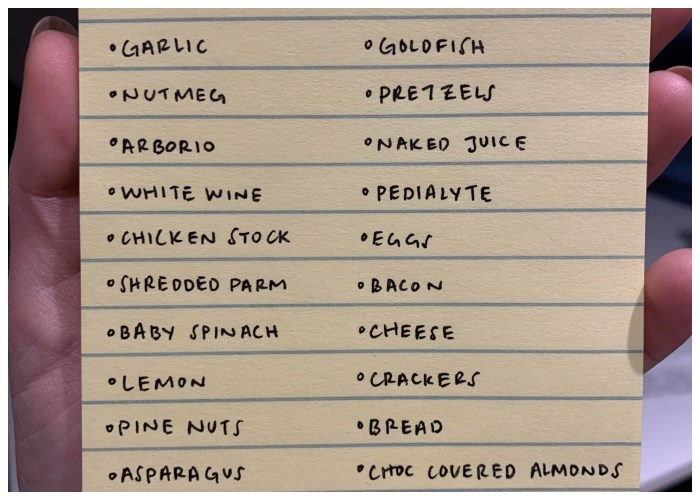 •GARLIC
•NUTMEG
•ARBORIO
•WHITE WINE
•CHICKEN STOCK
•SHREDDED PARM
•BABY SPINACH
•LEMON
•PINE NUTS
•ASPARAGUS
•GOLDFISH
•PRETZELS
•NAKED JUICE
•PEDIALYTE
•EGGS
•BACON
•CHEESE
•CRACKERS
•BREAD
•CHOC COVERED ALMONDS